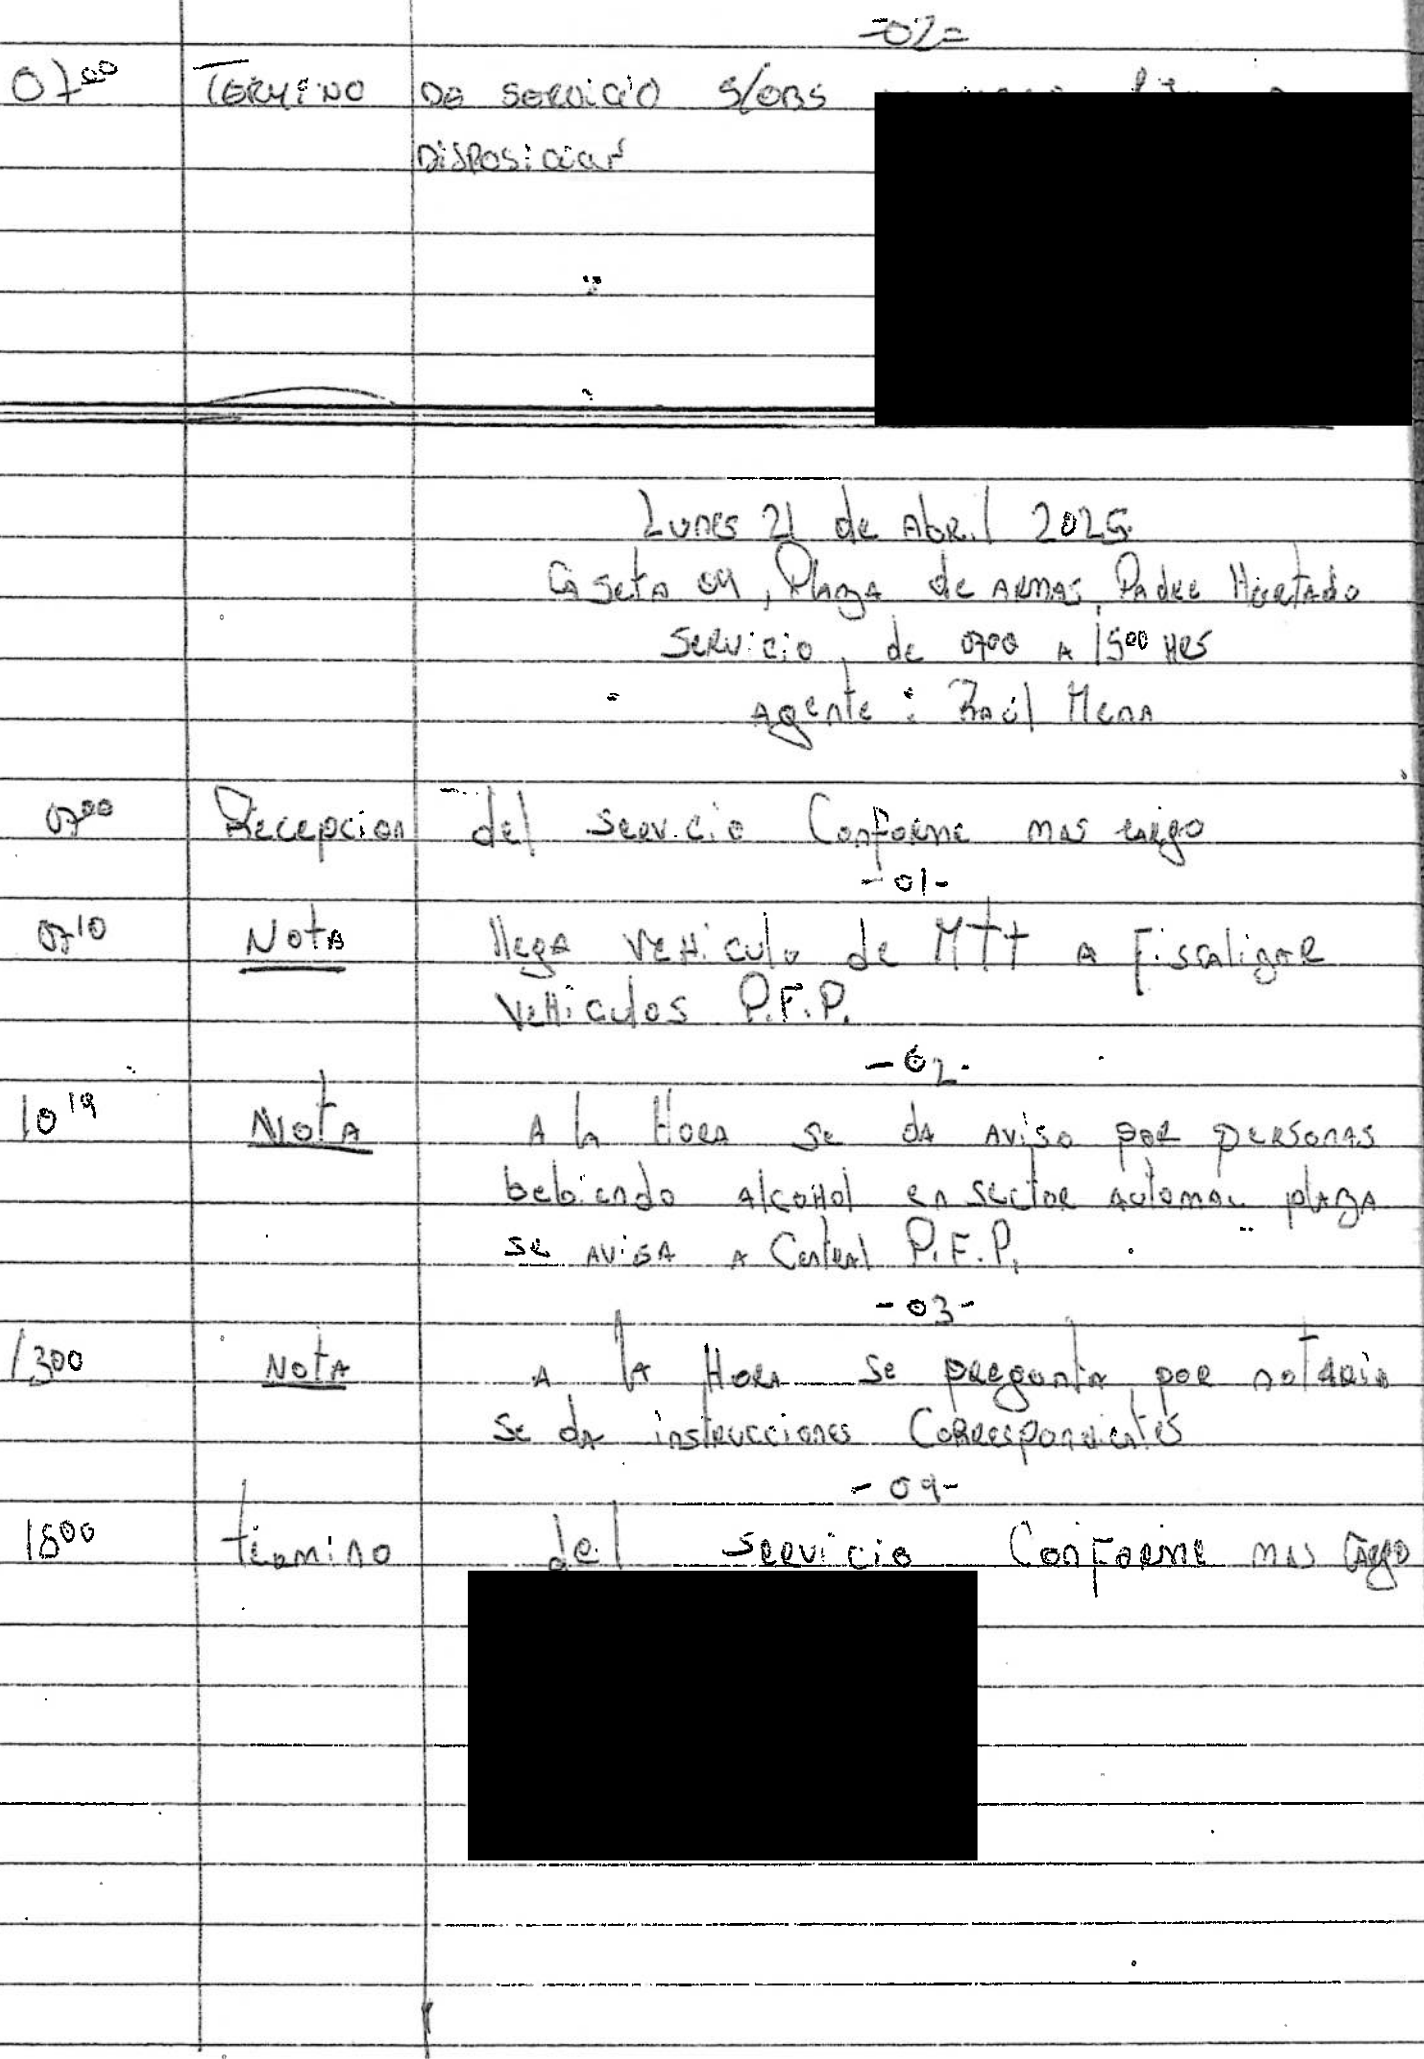 -02-
07⁰⁰ TERMINO DE SERVICIO S/OBS
DISPOSICION
Lunes 21 de Abril 2025
Caseta 04, Plaza de Armas, Padre Hurtado
Servicio, de 0700 A 15⁰⁰ HRS
Agente: Raúl Mena
07⁰⁰ Recepcion del servicio Conforme mas cargo
-01-
07¹⁰ Nota llega Vehiculo de MTT A Fiscalizar
Vehiculos P.F.P.
-02-
10¹⁹ Nota A la Hora se da aviso por personas
bebiendo alcohol en sector automac plaza
se avisa A Central P.F.P.
-03-
1300 Nota A la Hora se pregunta por notaria
se da instrucciones Correspondientes
-04-
1500 termino del servicio Conforme mas Cargo